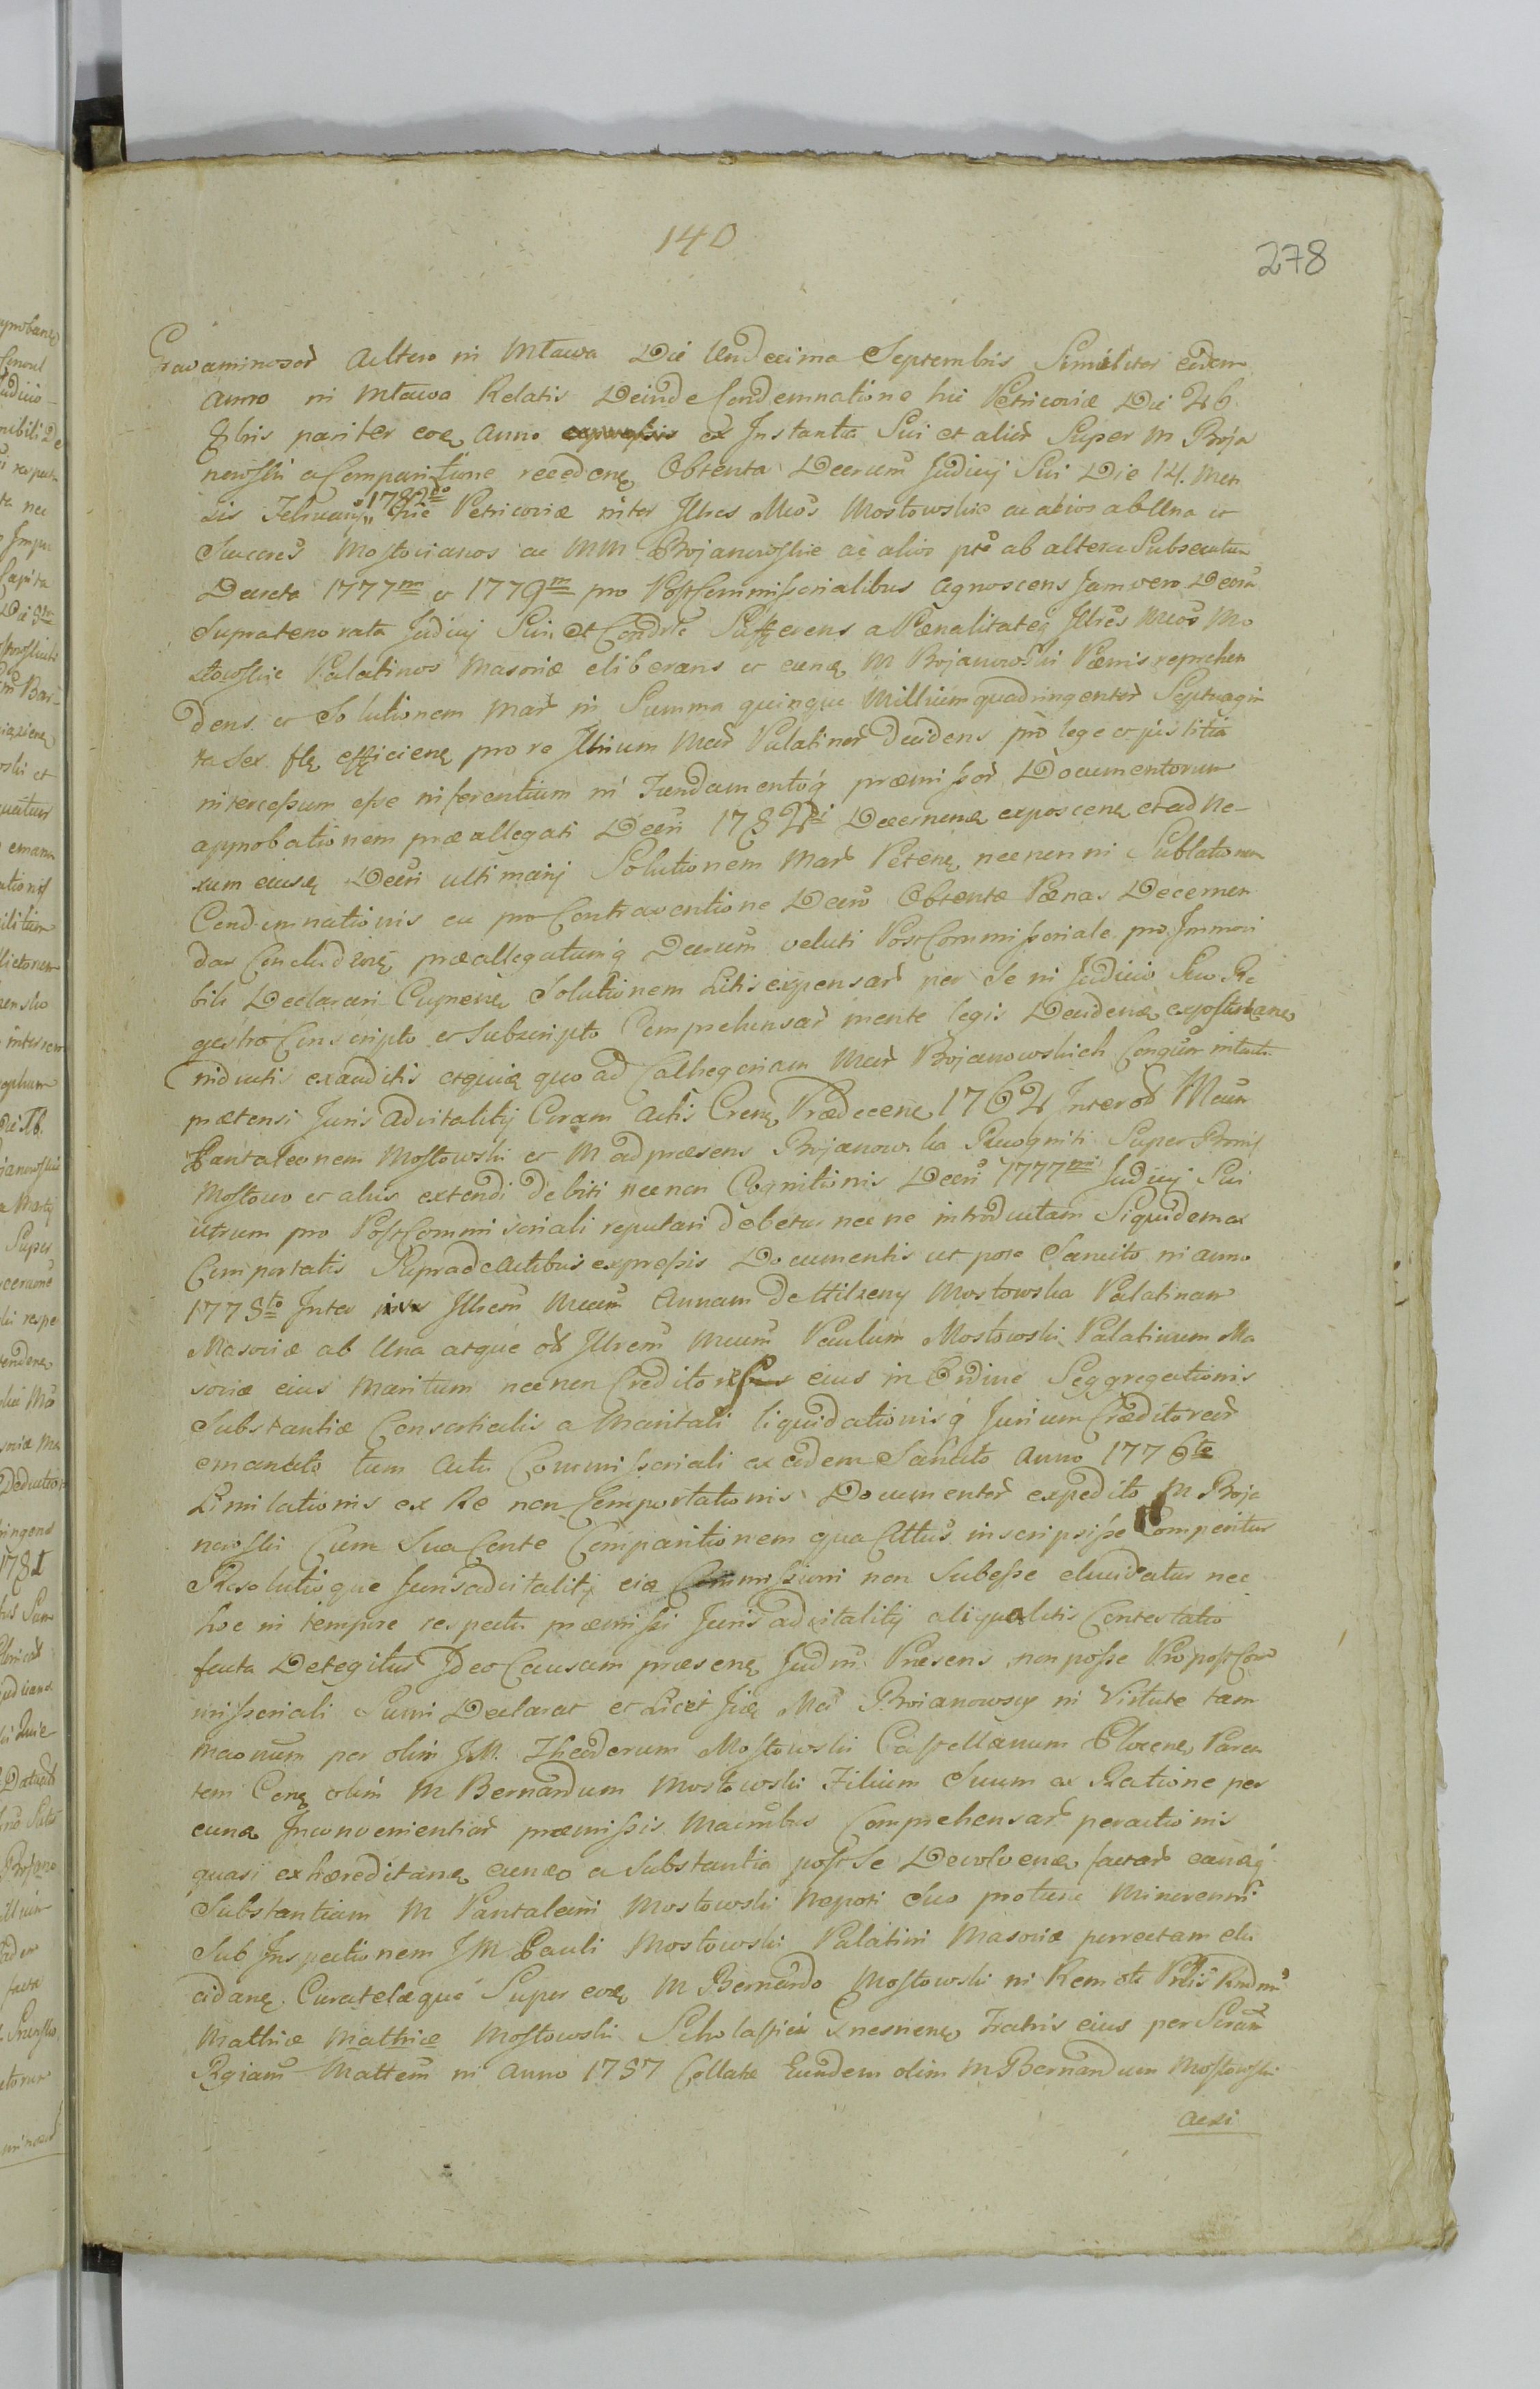 140
278
Gravaminosor̃ altero in Mława Die Undecima Septembris Similiter eodem
anno in Mława Relatis Deinde Condemnatione hic Petricoviæ Die 26
8bris pariter eoq̃ Anno ex Instantia Sui et alior̃ Super M Boja
nowski a Comparitione recedenꝫ Obtenta Decretum̃ Judicij Sui Die 14. Men
sis Februarij 1782do hic Petricoviæ inter Illres Meos̃ Mostowskie ac alios ab Una et
Succores̃ Mostovianos ac MM Bojanowskie ac alios pto ab altera Subsecutum
Decreta 1777m et 1779m pro PostCommissorialibus agnoscens Jam vero Decm̃
supratenorata Judicij Sui et Condtẽ Sufferens a Pœnalitateq̃ Illres Meos̃ Mo
stowskie Palatinos Masoviæ eliberans et eunꝫ M Bojanowski Pœnis reprehen
dens et Solutionem mar̃ in Summa quinque Millium quadringentor̃ Septuagin
ta sex flꝫ efficienꝫ pro re Illrium Mear̃ Palatinor̃ Decidens pro lege et justitia
intercessum esse inferentium in Fundamentoq̃ præmissor̃ Documentorum
approbationem præallegati Decri 1782di Decernenꝫ exposcenꝫ et ad Ne-
xum eiusꝫ Decri ultimarij Solutionem Mar̃ Petenꝫ necnon in Sublationem
Condemnationis ea pro Contraventione Decro Obtentæ Pœnas Decernen
das Concludenꝫ præallegatumq̃ Decretum̃ veluti PostCommissoriale pro Immovi
bili Declarari Cupienꝫ Solutionem Litis expensar̃ per Se in Judicio Suo Re
gestro Conscripto et Subscripto Comprehensar̃ mente legis Decidenꝫ expostulanꝫ
inductis exauditis atquia quo ad Cathegoriam Mear̃ Bojanowskich Congrm̃ intuitu
prætensi Juris advitalitij Coram Actis Crenꝫ Prædecenꝫ 1762 Inter olim Meum̃
Pantaleonem Mostowski et M ad præsens Bojanowska Recogniti Super Bonis
Mostowo et aliis extendi debiti necnon Cognitionis Decri 1777mi Judicij Sui
utrum pro PostCommissoriali reputari debetur nec ne introductam Siquidem ex
Comportatis Supradeactibus expressis Documentis ut pote Sancito in anno
1775to Inter Illrem̃ Meam̃ Annam de Hilzeny Mostowska Palatinam
Masoviæ ab Una atque Illrem̃ Meum̃ Paulum Mostowski Palatinum Ma
soviæ eius Maritum necnon Creditores eius in Ordine Seggregationis
Substantiæ Consortialis a Maritali liquidationisq̃ Jurium Creditorum̃
emanato tum Actu Commissoriali ex eodem Sancito Anno 1776to
Limitationis ex Re non Comportationis Documentor̃ expedito M Boja
nowski Cum Sua Conte Comparitionem qua Actus̃ inscripsisse Comperitur
Resolutioque Juris advitalitij eiꝫ Commissioni non Subesse elucidatur nec
hoc in tempore respectu præmissi Juris advitalitij aliqualitis Contestatio
facta Detegitur Ideo Causam præsenꝫ Judm̃ Præsens non posse Pro postCom
missoriali Sumi Declarat et Licet Jiꝫ Mci Bojanowscy in Virtute tam
macnum per olim JM. Theodorum Mostowski Castellanum Plocenꝫ Paren
tem Conꝫ olim M Bernardum Mostowski Filium Suum ex Ratione per
eunꝫ Inconvenientiar̃ præmissis Macnibus Comprehensar̃ peractionis
quasi exhæreditanꝫ eunꝫ a Substantia post Se Devolvenꝫ factar̃ eanꝫq̃
Substantiam M Pantaleoni Mostowski Nepoti Suo protunc Minorenni
Sub Inspectionem JM Pauli Mostowski Palatini Masoviæ perrectam elu
cidanꝫ. Curatelæque Super eoꝫ M Bernardo Mostowski in Remoti Prlis Rndmi
Mathiæ Mathiæ Mostowski Scholastici Gnesnenꝫ Fratris eius per Scram̃
Rgiam̃ Mattem̃ in Anno 1757 Collatæ Eundem olim M Bernardum Mostowski
acsi